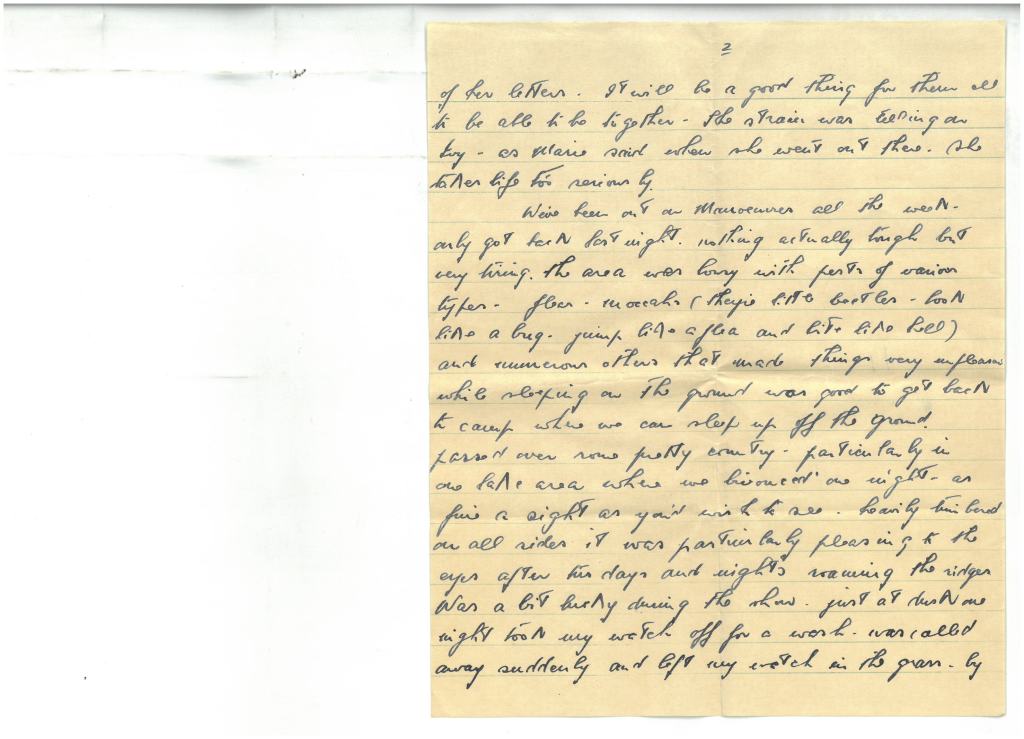 2
of her letters. It will be a good thing for them all
to be able to be together - the strain was telling on
Ivy - as Marie said when she went out there. She
takes life too seriously.
We've been out on Manoeuvres all the week -
only got back last night. nothing actually tough but
very tiring. the area was lousy with pests of various
types - fleas - (they're little beetles - look
like a bug - jump like a flea and bite like hell)
and numerous others that made things very unpleasant
while sleeping on the ground was good to get back
to camp where we can sleep up off the ground.
passed over some pretty country - particularly in
one lake area where we bivouced one night - as
fine a sight as you'd wish to see. heavily timbered
on all sides it was particularly pleasing to the
eyes after days and nights roaming the ridges
Was a bit lucky during the show. just at dusk one
night took my watch off for a wash - was called
away suddenly and left my watch in the grass - by